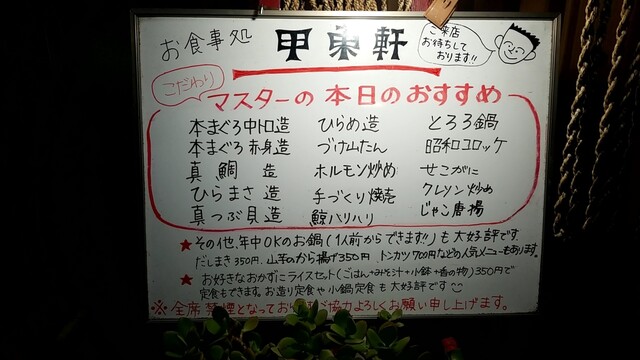 お食事処 甲東軒
ご来店
お待ちして
おります!!
こだわり
マスターの本日のおすすめ
本まぐろ中トロ造 ひらめ造 とろろ鍋
本まぐろ赤身造 づけ山たん 昭和コロッケ
真鯛造 ホルモン炒め せこがに
ひらまさ造 手づくり焼売 クレソン炒め
真つぶ貝造 鯨ハリハリ じゃこ唐揚
★その他、年中OKのお鍋(1人前からできます!!)も大好評です
だしまき350円、山芋のから揚げ350円、トンカツ700円などの人気メニューもあります。
★お好きなおかずにライスセット(ごはん+みそ汁+小鉢+香の物)350円で
定食もできます。お造り定食や小鍋定食も大好評です
※全席禁煙となって協力よろしくお願い申し上げます。